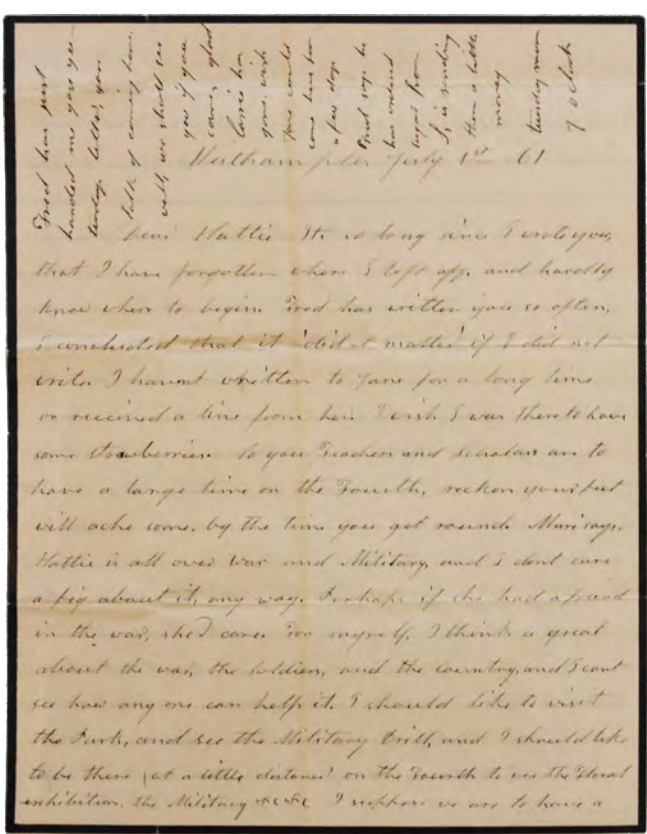 Fred has just
handed me your yes-
terday letter, you
talk of coming home.
well, we shall see
you if you
come, glad
Carrie has
gone. wish
Jane could
come here too
a few days
Fred says he
has ordered
sugar from
S, is sending
them a little
money
tuesday morn
7 o clock
Westhampton July 1st 61
Dear Hattie It is so long since I wrote you,
that I have forgotten where I left off, and hardly
know where to begin. Fred has written you so often,
I concluded that it 'did nt matter' if I did not
write. I havent whritten to Jane for a long time
or received a line from her. I wish I was there to have
some Strawberries. So your Teachers and Scholars are to
have a large time on the Fourth, reckon your feet
will ache some, by the time you get round. Mari says,
Hattie is all over war and Military, and I dont care
a fig about it, any way. Perhaps if she had a friend
in the war, she'd care. For myself, I think a great
about the war, the soldiers, and the country, and I cant
see how any one can help it. I should like to visit
the Park, and see the Military Drill, and I should like
to be there (at a little distance) on the Fourth to see the Floral
exhibition, the Military &c &c I suppose we are to have a